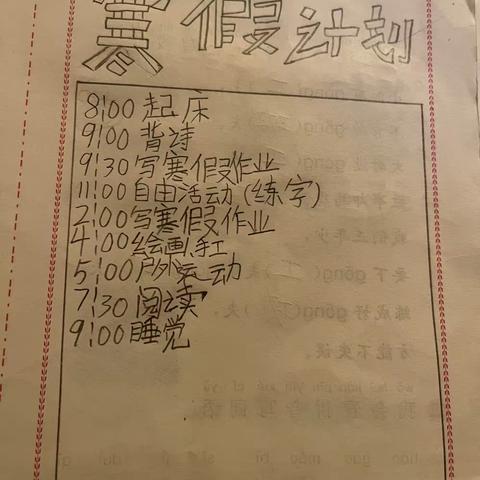 寒假计划
8:00 起床
9:00 背诗
9:30 写寒假作业
11:00 自由活动 (练字)
2:00 写寒假作业
4:00 绘画,手工
5:00 户外运动
7:30 阅读
9:00 睡觉